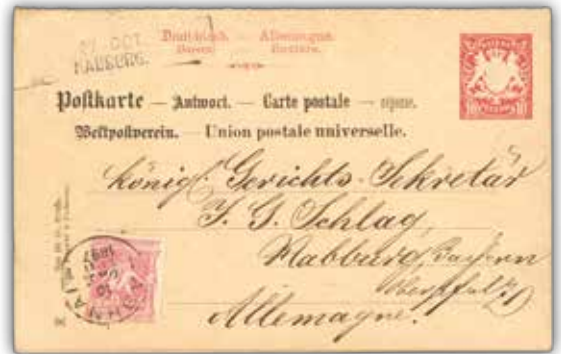 27. OCT.
NABBURG.
Deutschland. — Allemagne.
Bayern. Bavière.
Postkarte — Antwort. — Carte postale — réponse.
Weltpostverein. — Union postale universelle.
10 10
Königl. Gerichts-Sekretär
J. G. Schlag,
Nabburg, Bayern
Oberpfalz
Allemagne.